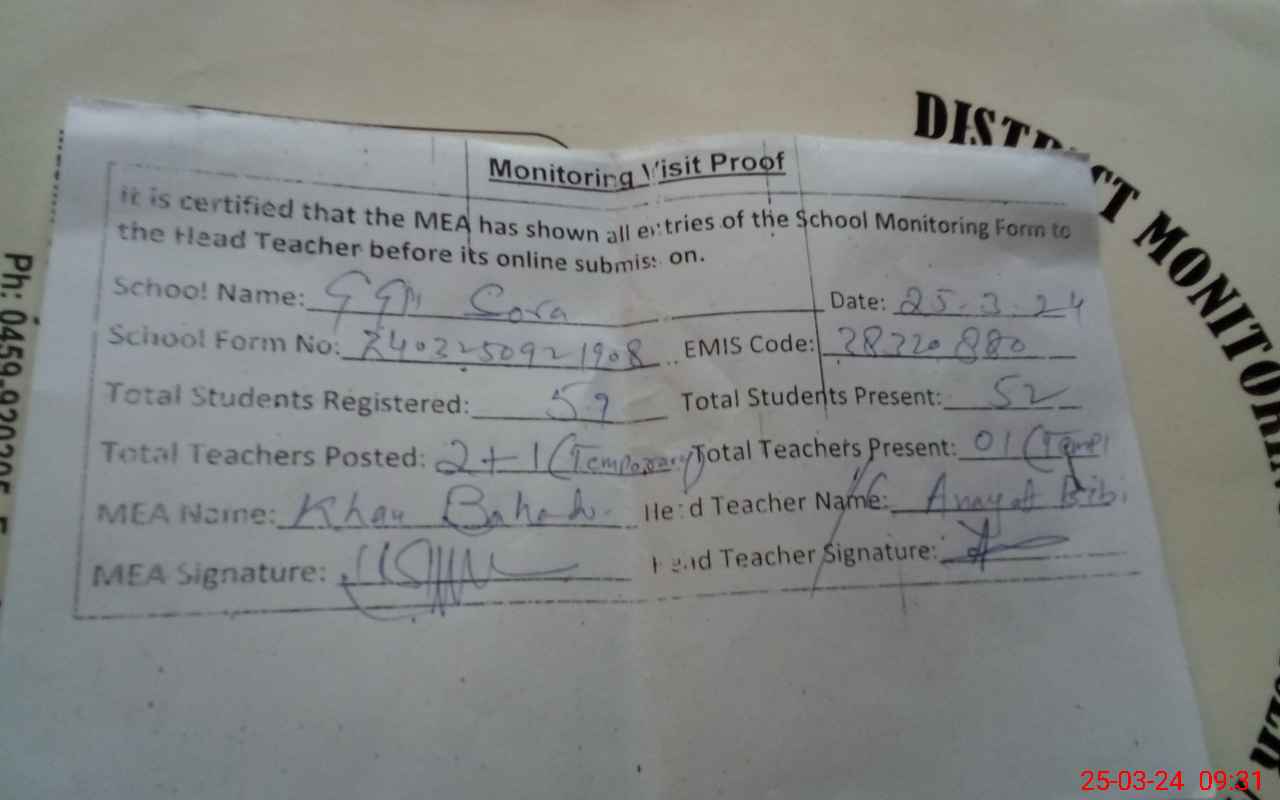 DISTRICT MONITORING
Monitoring Visit Proof
It is certified that the MEA has shown all entries of the School Monitoring Form to
the Head Teacher before its online submission.
School Name: GGPS Sora Date: 25.3.24
School Form No: 2403250921908 EMIS Code: 38320880
Total Students Registered: 59 Total Students Present: 52
Total Teachers Posted: 2+1 (Temporary) Total Teachers Present: 01 (Temp)
MEA Name: Khan Bahadur Head Teacher Name: Anayat Bibi
MEA Signature: Head Teacher Signature:
Ph: 0459-920205
25-03-24 09:31